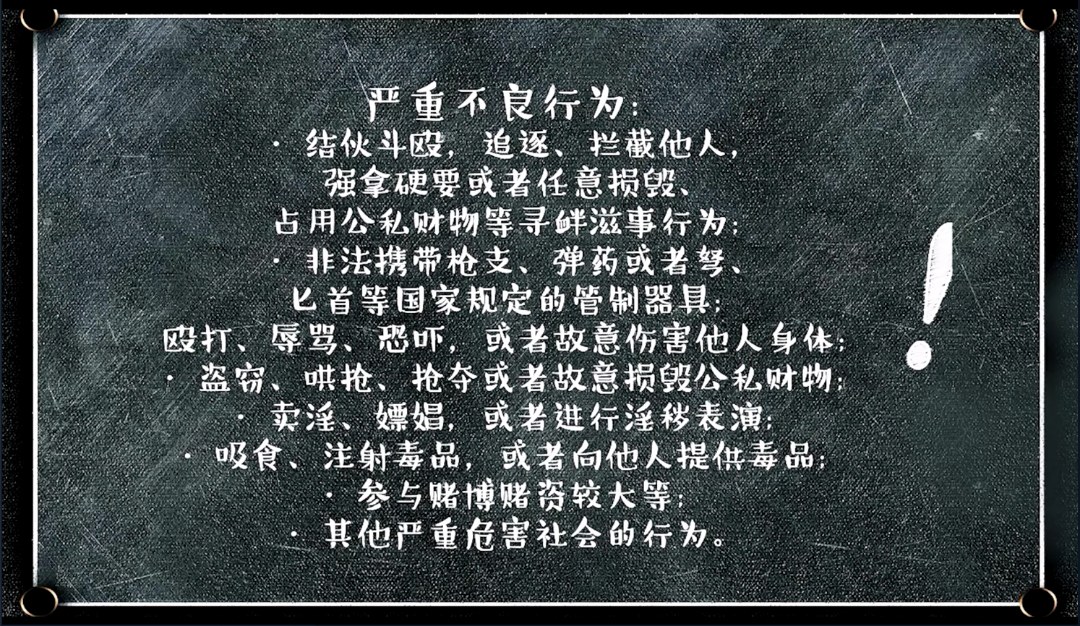 严重不良行为：
· 结伙斗殴，追逐、拦截他人，
强拿硬要或者任意损毁、
占用公私财物等寻衅滋事行为；
· 非法携带枪支、弹药或者弩、
匕首等国家规定的管制器具；
殴打、辱骂、恐吓，或者故意伤害他人身体；
· 盗窃、哄抢、抢夺或者故意损毁公私财物；
· 卖淫、嫖娼，或者进行淫秽表演；
· 吸食、注射毒品，或者向他人提供毒品；
· 参与赌博赌资较大等；
· 其他严重危害社会的行为。
！